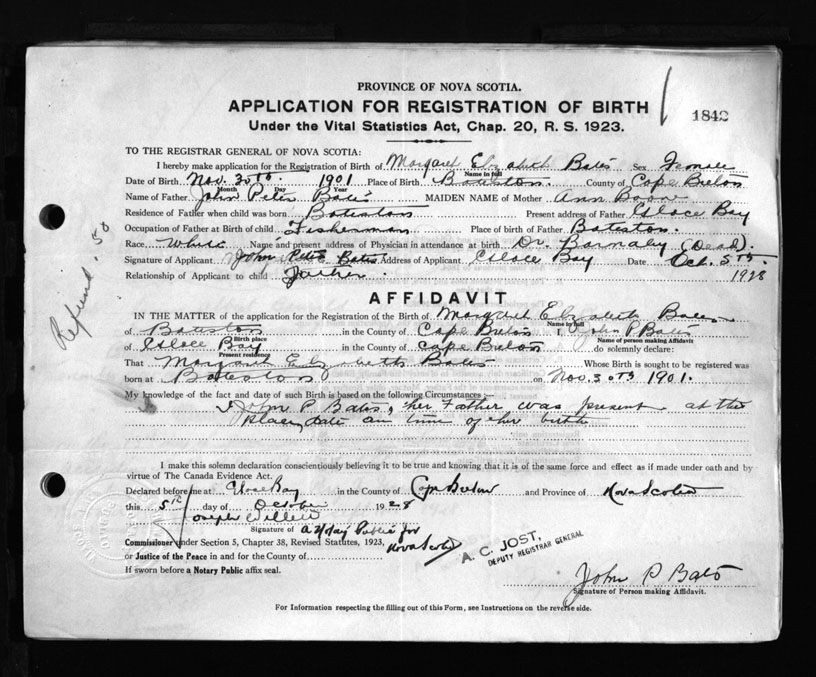 PROVINCE OF NOVA SCOTIA.
APPLICATION FOR REGISTRATION OF BIRTH
1842
Under the Vital Statistics Act, Chap. 20, R. S. 1923.
TO THE REGISTRAR GENERAL OF NOVA SCOTIA:
I hereby make application for the Registration of Birth of Margaret Elizabeth Bates Sex Female
Name in full
Date of Birth Nov. 30th. 1901 Place of Birth Bateston. County of Cape Breton
Month Day Year
Name of Father John Peter Bates MAIDEN NAME of Mother Ann Boone
Residence of Father when child was born Bateston Present address of Father Glace Bay
Occupation of Father at Birth of child Fisherman Place of birth of Father Bateston.
Race White Name and present address of Physician in attendance at birth Dr. Barnaby (Dead).
Signature of Applicant John Peter Bates Address of Applicant Glace Bay Date Oct. 5th.
1928
Relationship of Applicant to child Father.
Refund .50
AFFIDAVIT
IN THE MATTER of the application for the Registration of the Birth of Margaret Elizabeth Bates
Name in full
of Bateston in the County of Cape Breton I, John P Bates
Birth place Name of person making Affidavit
of Glace Bay in the County of Cape Breton do solemnly declare:
Present residence
That Margaret Elizabeth Bates Whose Birth is sought to be registered was
born at Bateston on Nov. 30th 1901.
My knowledge of the fact and date of such Birth is based on the following Circumstances :—
I John P Bates, her Father was present at the
place, date an time of her birth
I make this solemn declaration conscientiously believing it to be true and knowing that it is of the same force and effect as if made under oath and by
virtue of The Canada Evidence Act.
Declared before me at Glace Bay in the County of Cape Breton and Province of Nova Scotia
this 5th day of October 1928
Joseph Willett
Signature of a Notary Public for
Nova Scotia
Commissioner under Section 5, Chapter 38, Revised Statutes, 1923,
or Justice of the Peace in and for the County of
If sworn before a Notary Public affix seal.
A. C. JOST,
DEPUTY REGISTRAR GENERAL
John P Bates
Signature of Person making Affidavit.
For Information respecting the filling out of this Form, see Instructions on the reverse side.